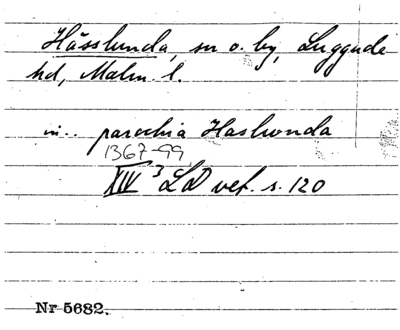 Hässlunda, sn o. by, Luggude
hd, Malm. l.
in.. parochia Haslwnda
1367-99
XIV 3 LD vet. s. 120
Nr 5682.